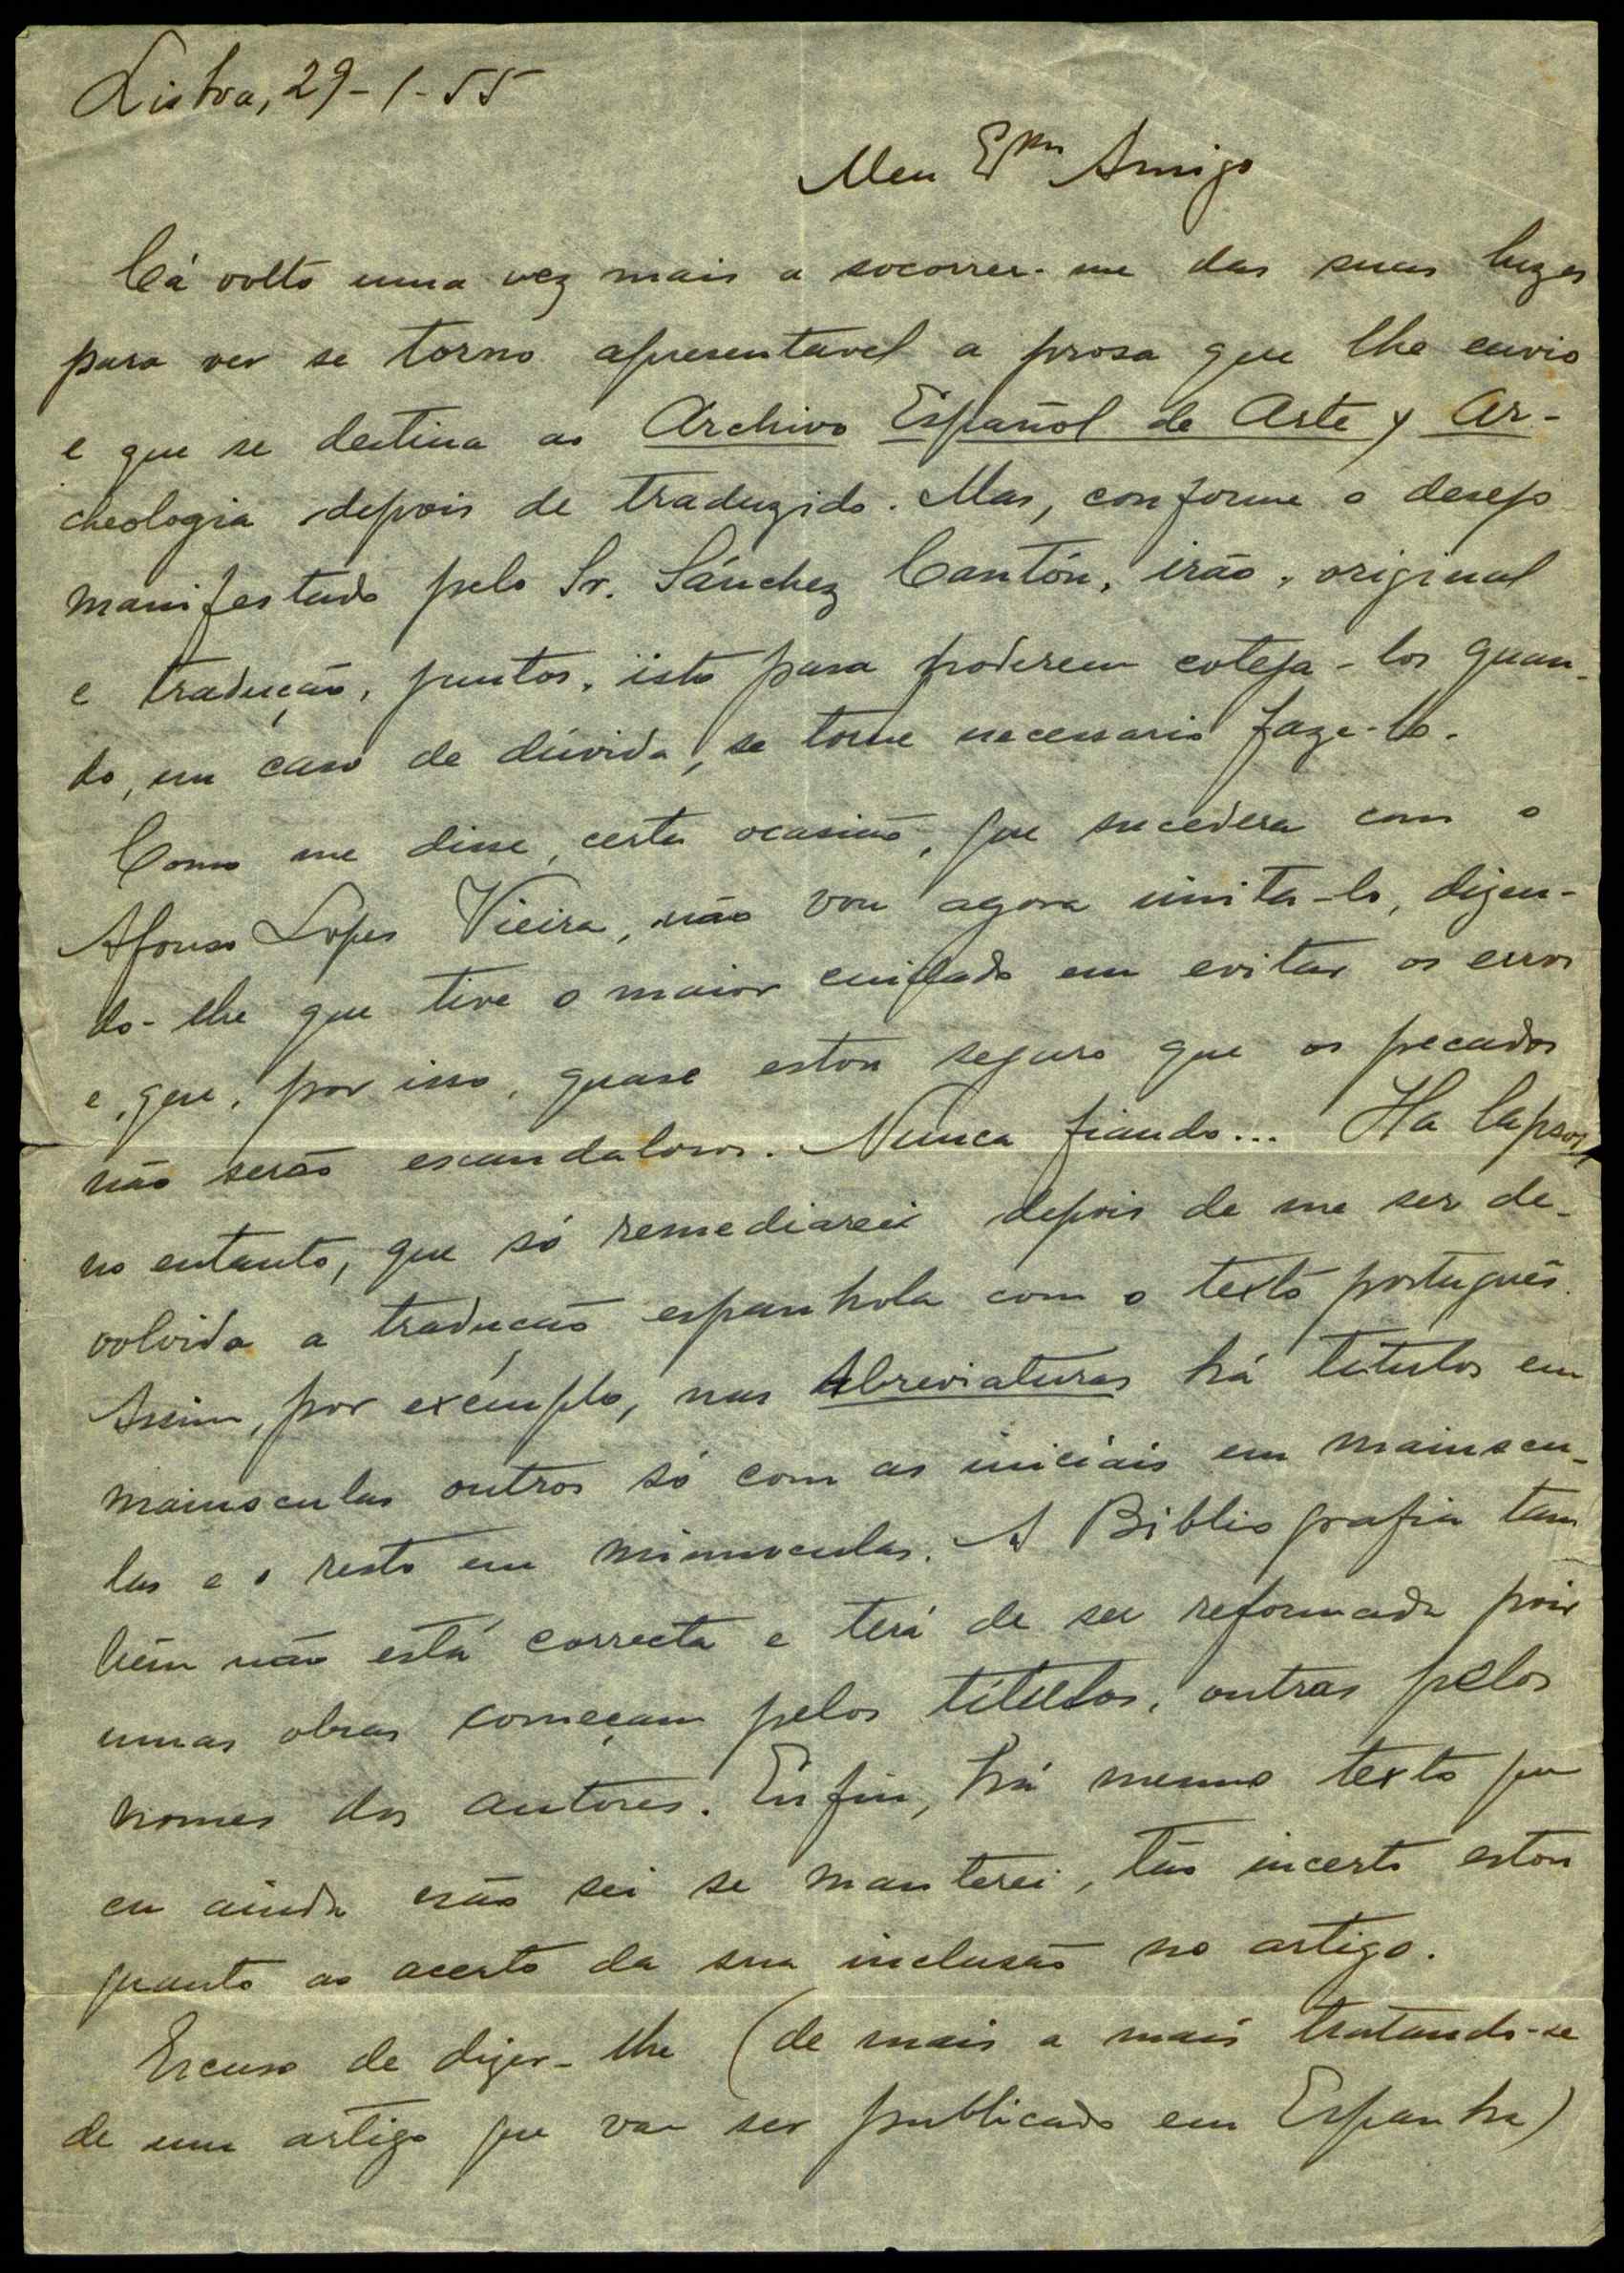 Lisboa, 29-1-55
Meu Exmo Amigo
Cá volto uma vez mais a socorrer-me das suas luzes
para ver se torno apresentavel a prosa que lhe envio
e que se destina ao Archivo Español de Arte y Ar-
cheologia depois de traduzido. Mas, conforme o desejo
manifestado pelo Sr. Sánchez Cantón, irão, original
e tradução, juntos, isto para poderem coteja-los quan-
do, em caso de dúvida, se torne necessario faze-lo.
Como me disse, certa ocasião, que sucedera com o
Afonso Lopes Vieira, não vou agora imita-lo, dizen-
do-lhe que tive o maior cuidado em evitar os erros
e, que, por isso, quase estou seguro que os pecados
não serão escandalosos. Nunca fiando... Ha lapsos,
no entanto, que só remediarei depois de me ser de-
volvida a tradução espanhola com o texto português.
Assim, por exemplo, nas Abreviaturas há titulos em
maiusculas outros só com as iniciais em maiuscu-
las e o resto em minusculas. A Bibliografia tam
bém não está correcta e terá de ser reformada pois
umas obras começam pelos titulos, outras pelos
nomes dos autores. Enfim, há mesmo texto que
eu ainda não sei se manterei, tão incerto estou
quanto ao acerto da sua inclusão no artigo.
Escuso de dizer-lhe (de mais a mais tratando-se
de um artigo que vai ser publicado em Espanha)